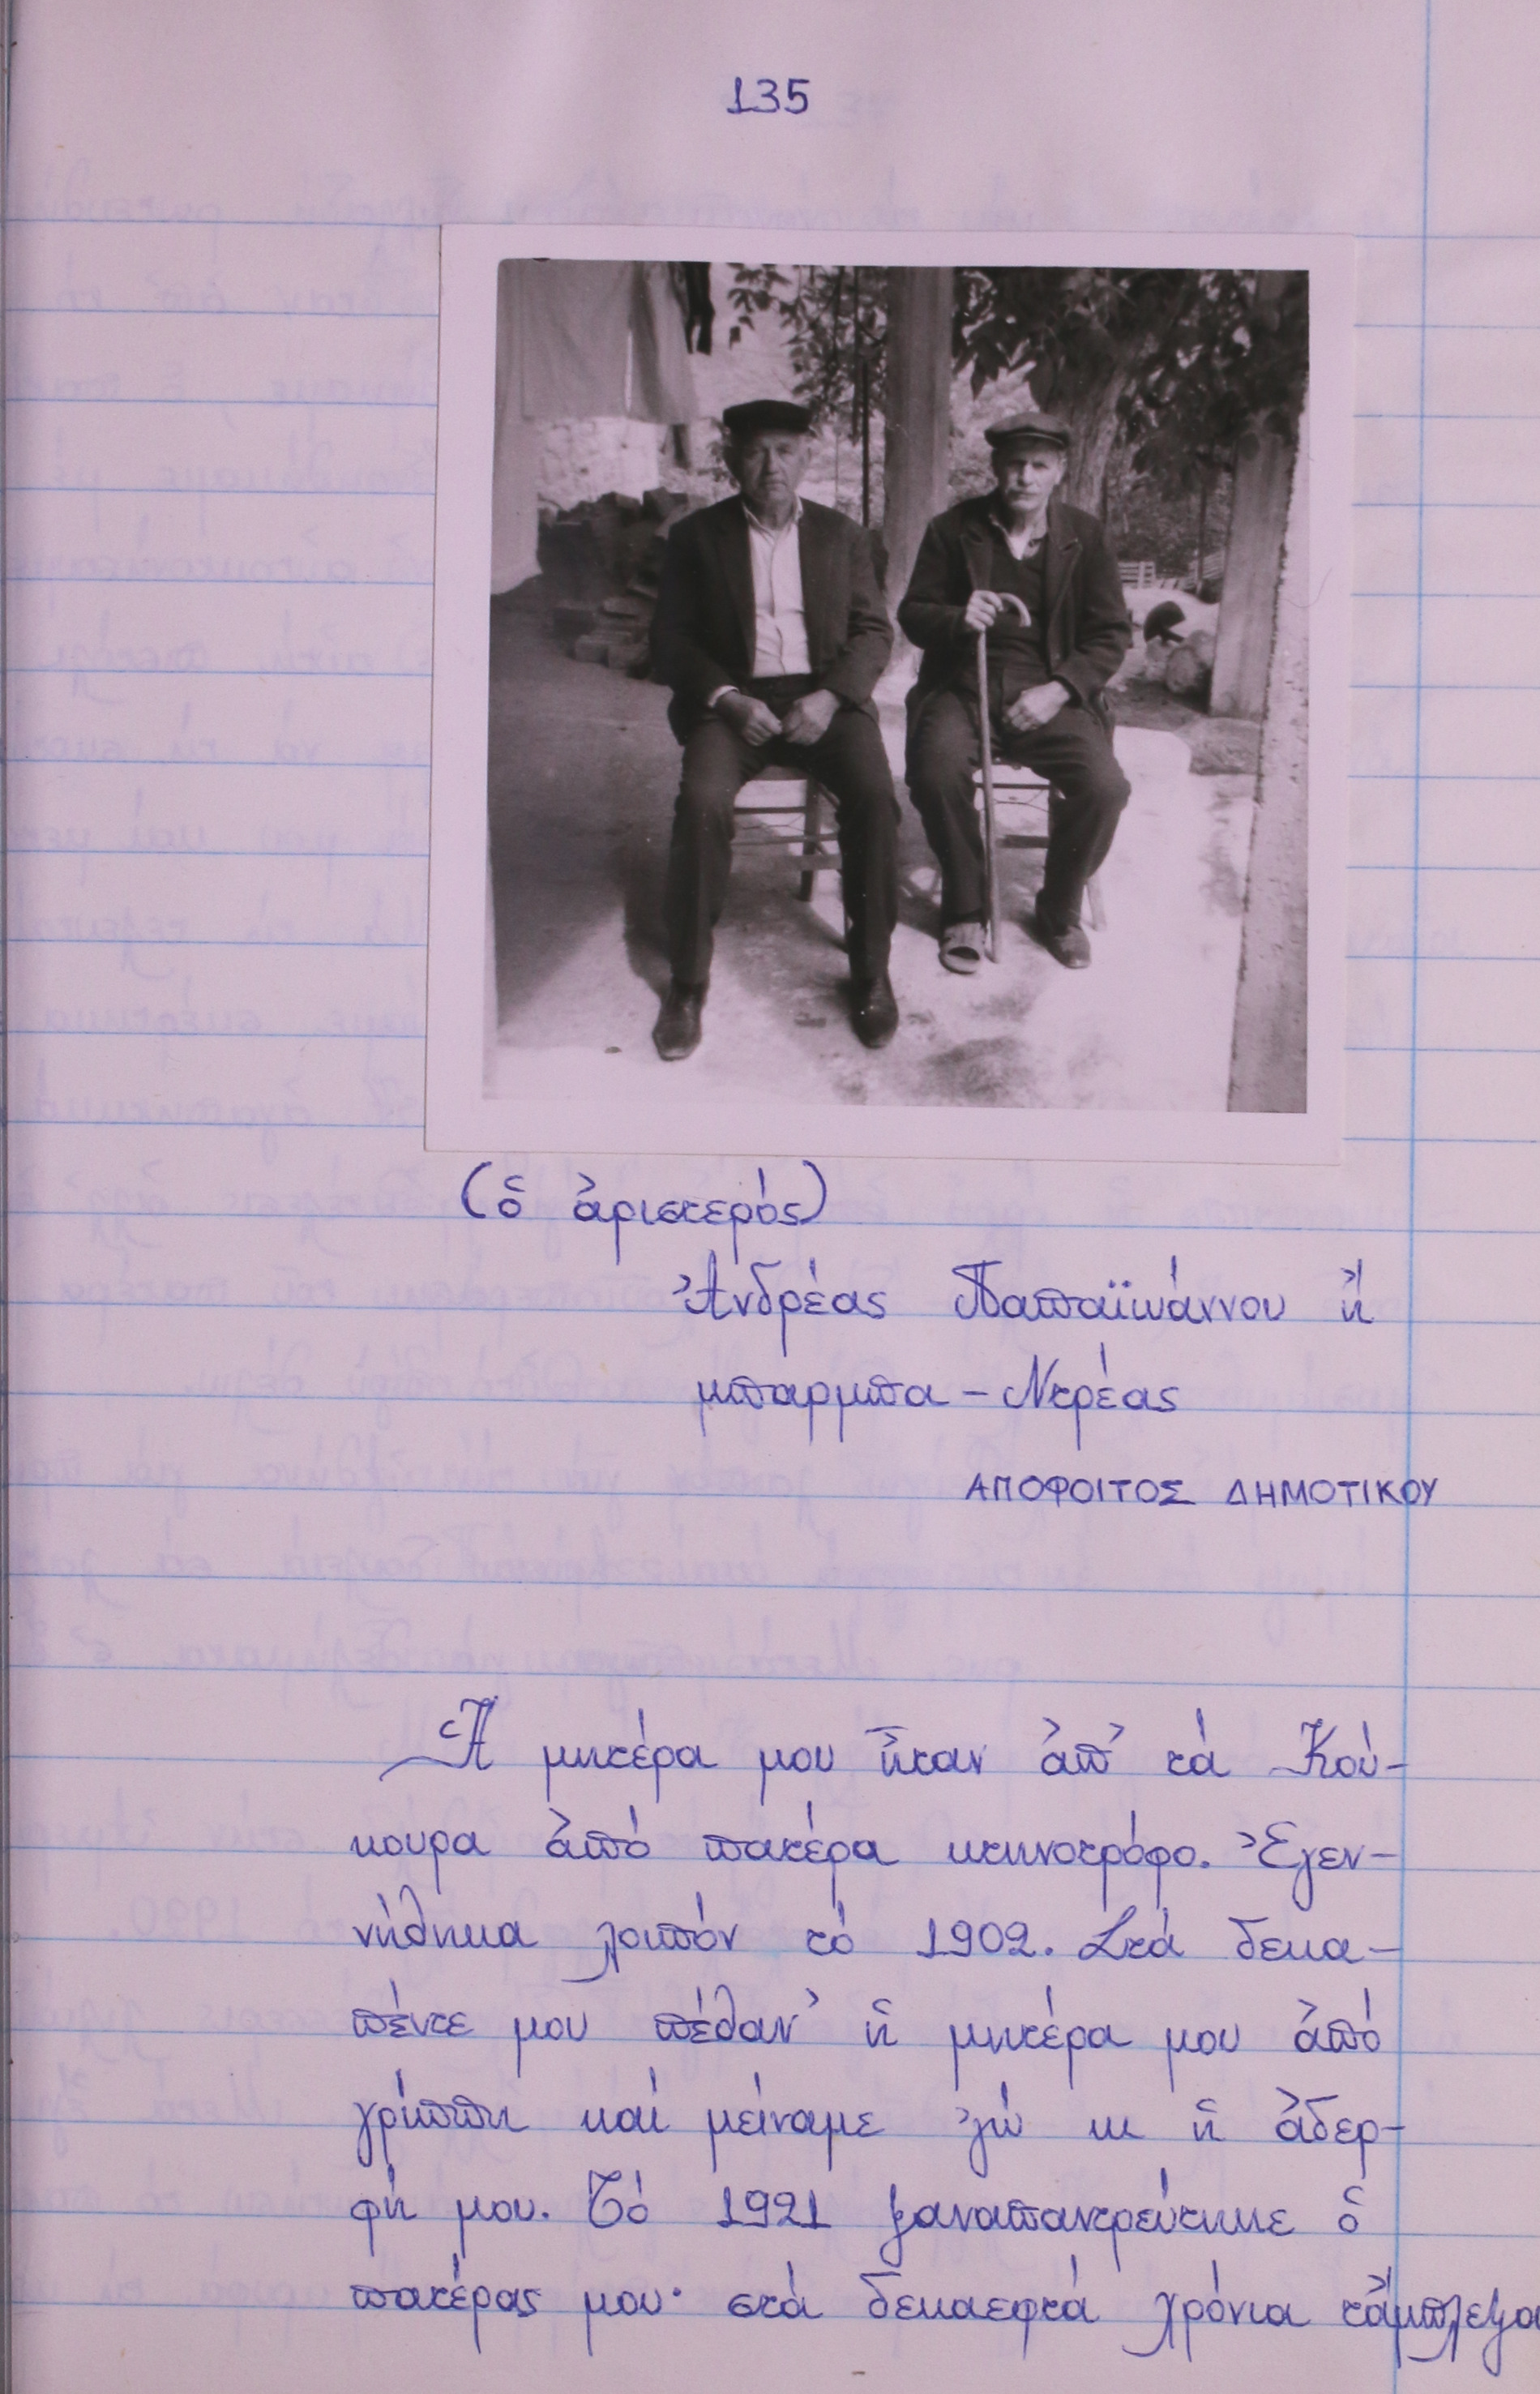 135
(ὁ ἀριστερός)
Ἀνδρέας Παπαϊωάννου ἤ
μπαρμπα-Ντρέας
ΑΠΟΦΟΙΤΟΣ ΔΗΜΟΤΙΚΟΥ
Ἡ μητέρα μου ἦταν ἀπ' τά Κού-
κουρα ἀπό πατέρα κτηνοτρόφο. Ἐγεν-
νήθηκα λοιπόν τό 1902. Στά δεκα-
πέντε μου πέθαν' ἡ μητέρα μου ἀπό
γρίππη καί μείναμε 'γώ κι ἡ ἀδερ-
φή μου. Τό 1921 ξαναπαντρεύτηκε ὁ
πατέρας μου· στά δεκαεφτά χρόνια τἄμπλεξα